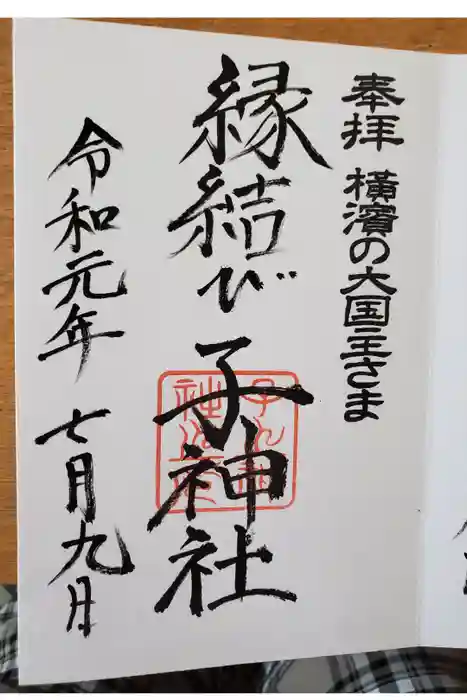 奉拝 横濱の大国主さま
縁結び 子神社
令和元年 七月九日